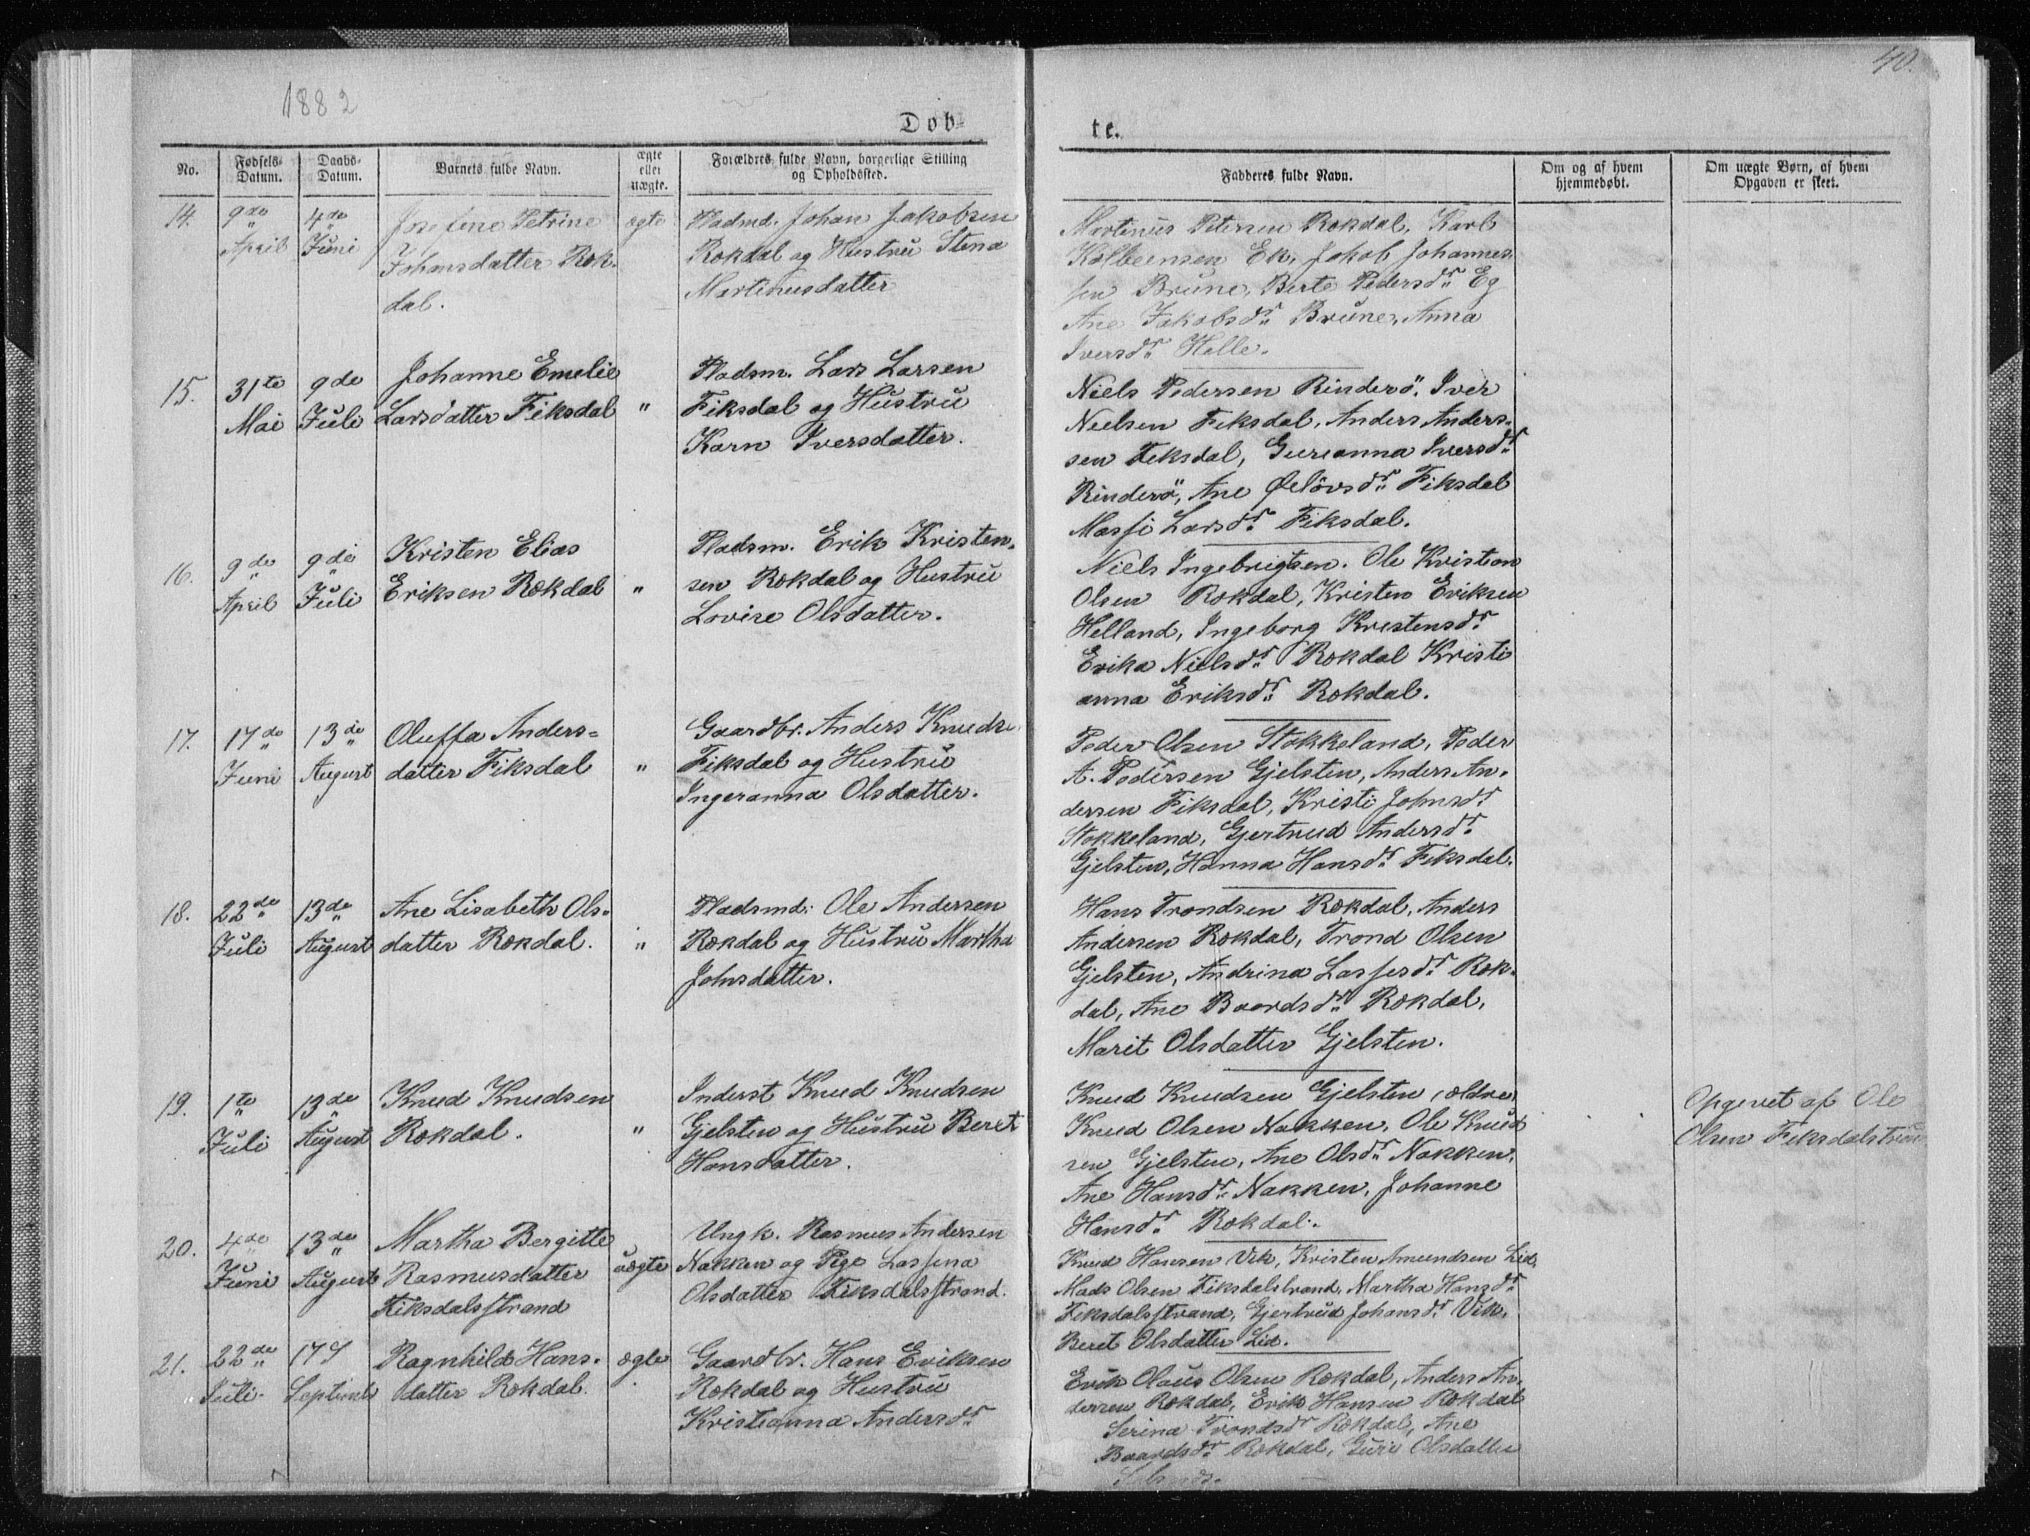 1882
40.
Døb-
te.
No.
Fødsels-
Datum.
Daabs-
Datum.
Barnets fulde Navn.
ægte
eller
uægte.
Forældres fulde Navn, borgerlige Stilling
og Opholdssted.
Fadderes fulde Navn.
Om og af hvem
hjemmedøbt.
Om uægte Børn, af hvem
Opgaven er skeet.
14.
9de
April
4de
Juni
Josefine Petrine
Johansdatter Rek-
dal.
ægte
Pladsmd. Johan Jakobsen
Rekdal og Hustru Stena
Martinusdatter
Martinus Petersen Rekdal, Karl
Kolbeensen Ek, Jakob Johannes-
sen Brune, Berte Pedersdr Eg
Ane Jakobsdr Brune, Anna
Iversdr Helle.
15.
31te
Mai
9de
Juli
Johanne Emelie
Larsdatter Fiksdal
"
Pladsm. Lars Larsen
Fiksdal og Hustru
Karn Iversdatter.
Niels Pedersen Rinderö, Iver
Nielsen Fiksdal, Anders Anders-
sen Fiksdal, Gurianna Iversdr
Rinderö, Ane Fiksdal
Massi Larsdr Fiksdal.
16.
9de
April
9de
Juli
Kristen Elias
Eriksen Rekdal
"
Pladsm. Erik Kristen-
sen Rekdal og Hustru
Lovise Olsdatter.
Niels Ingebrigtsen. Ole Kristian
Olsen Rekdal, Kristen Eriksen
Helland, Ingeborg Kristensdr
Erika Nielsdr Rekdal Kristi
anna Eriksdr Rekdal.
17.
17de
Juni
13de
August
Oluffa Anders=
datter Fiksdal
"
Gaardbr. Anders Knuds.
Fiksdal og Hustru
Ingeranna Olsdatter.
Peder Olsen Stokkeland, Peder
A. Pedersen Gjelsten, Anders An-
dersen Fiksdal, Kristi Johnsdr
Stokkeland, Gjertrud Andersdr
Gjelsten, Hanna Hansdr Fiksdal.
18.
22de
Juli
13de
August
Ane Lisabeth Ols-
datter Rekdal.
"
Pladsmd. Ole Andersen
Rekdal og Hustru Martha
Johnsdatter.
Hans Trondsen Rekdal, Anders
Andersen Rekdal, Trond Olsen
Gjelsten, Andrina Lassesdr Rek-
dal, Ane Baardsdr Rekdal,
Marit Olsdatter Gjelsten.
19.
1te
Juli
13de
August
Knud Knudsen
Rekdal.
"
Inderst Knud Knudsen
Gjelsten og Hustru Beret
Hansdatter.
Knud Knudsen Gjelsten, ældre,
Knud Olsen Nakken, Ole Knud
sen Gjelsten, Ane Olsdr Nakken,
Ane Hansdr Nakken, Johanne
Hansdr Rekdal.
Opgevet af Ole
Olsen
20.
4de
Juni
13de
August
Martha Bergitte
Rasmusdatter
Fiksdalsstrand
uægte
Ungk. Rasmus Andersen
Nakken og Pige Lassina
Olsdatter Fiksdalsstrand.
Knud Hansen Vik, Kristen Amundsen Lid,
Mads Olsen Fiksdalstrand, Martha Hansdr
Fiksdalsstrand, Gjertrud Johansdr Vik,
Beret Olsdatter Lid.
21.
22de
Juli
Septemb
Ragnhild Hans-
datter Rekdal
ægte
Gaardbr. Hans Eriksen
Rekdal og Hustru
Kristianna Andersdr
Erik Olaus Olsen Rekdal, Anders An-
dersen Rekdal, Erik Hansen Rekdal
Serina Trondsdr Rekdal, Ane
Baardsdr Rekdal, Guri Olsdatter